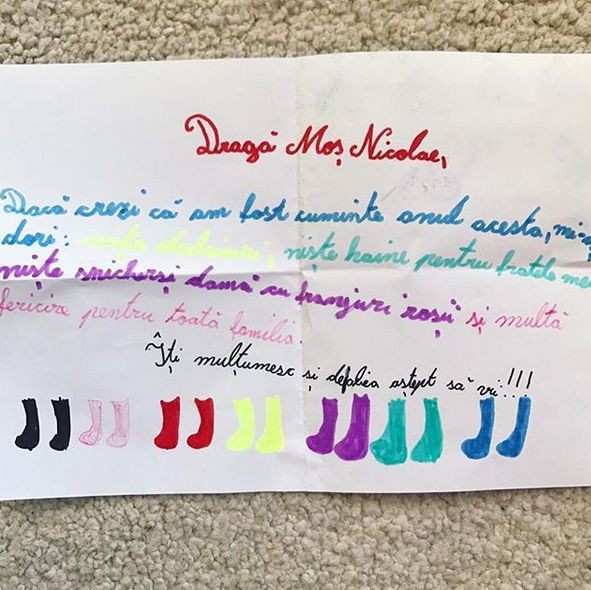 Dragă Moș Nicolae,
Dacă crezi că am fost cuminte anul acesta, mi-aș
dori: niște dulciuri, niște haine pentru fratele meu
niște snickerși damă cu franjuri "roșii" și multă
fericire pentru toată familia.
Îți mulțumesc și abia aștept să vii!!!